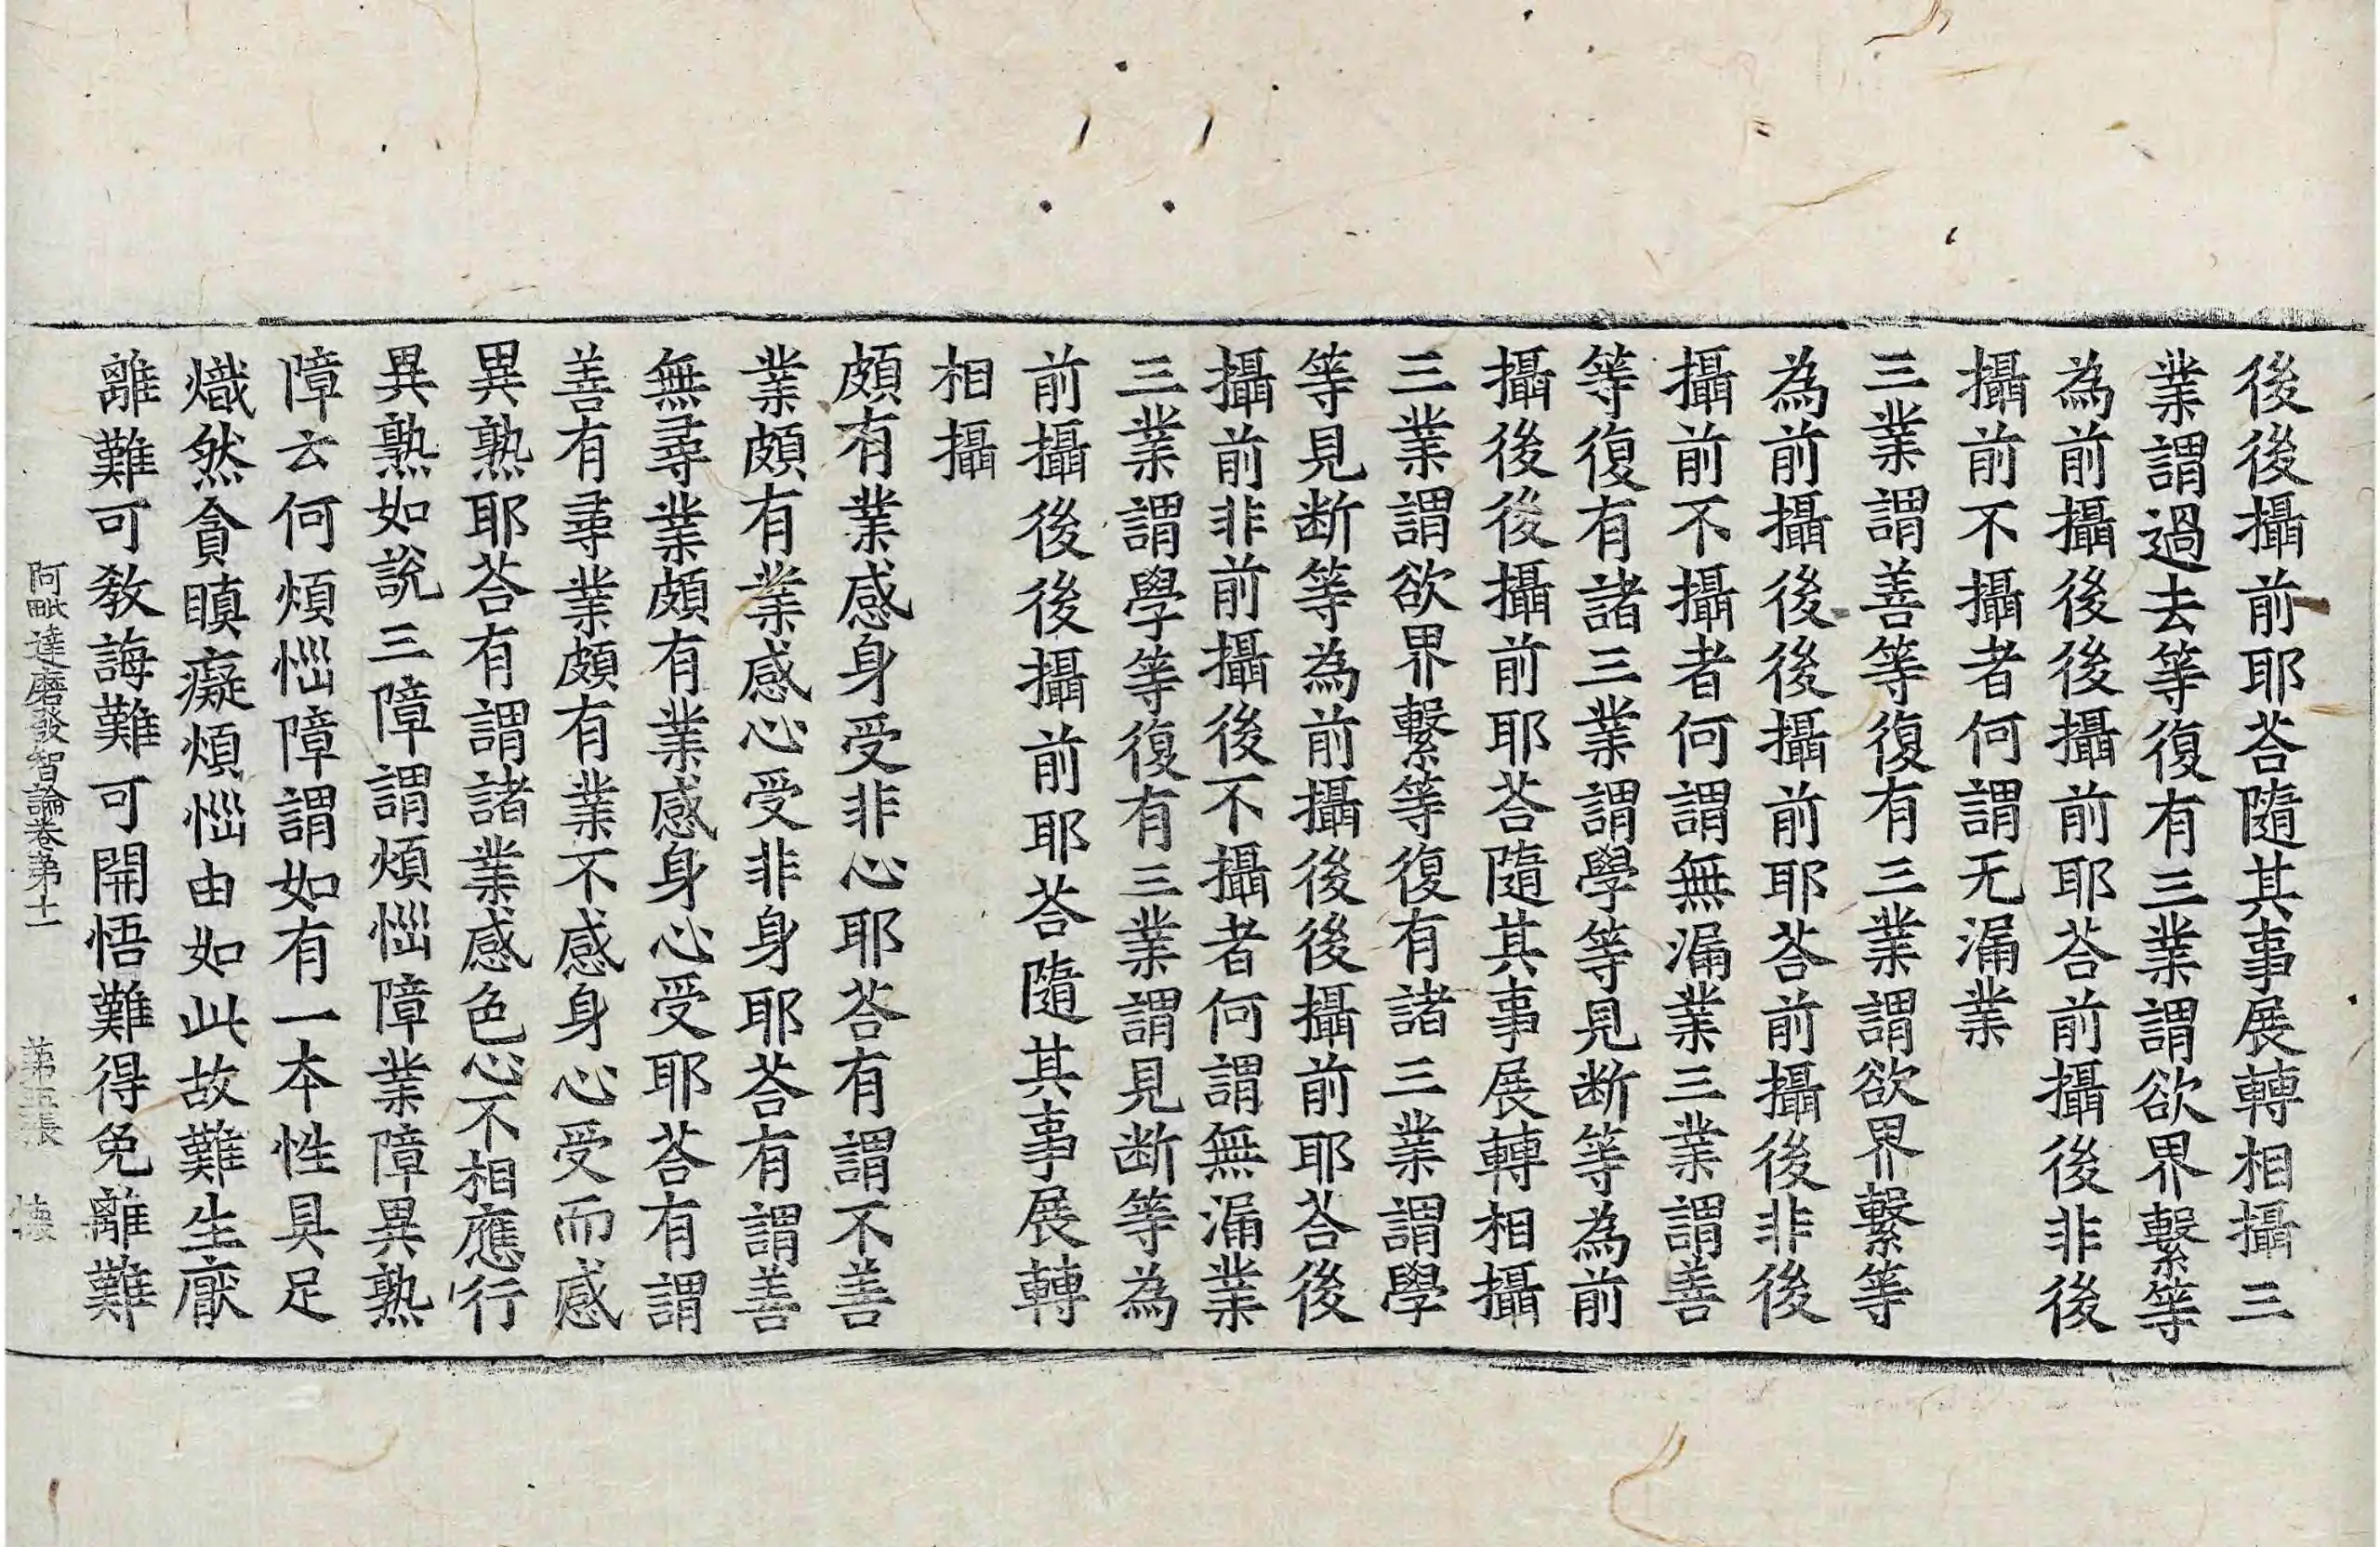 後後攝前耶荅隨其事展轉相攝三
業謂過去等復有三業謂欲界繫等
為前攝後後攝前耶荅前攝後非後
攝前不攝者何謂无漏業
三業謂善等復有三業謂欲界繫等
為前攝後後攝前耶荅前攝後非後
攝前不攝者何謂無漏業三業謂善
等復有諸三業謂學等見断等為前
攝後後攝前耶荅隨其事展轉相攝
三業謂欲界繫等復有諸三業謂學
等見断等為前攝後後攝前耶荅後
攝前非前攝後不攝者何謂無漏業
三業謂學等復有三業謂見断等為
前攝後後攝前耶荅隨其事展轉
相攝
頗有業感身受非心耶荅有謂不善
業頗有業感心受非身耶荅有謂善
無尋業頗有業感身心受耶荅有謂
善有尋業頗有業不感身心受而感
異熟耶荅有謂諸業感色心不相應行
異熟如說三障謂煩惱障業障異熟
障云何煩惱障謂如有一本性具足
熾然貪瞋癡煩惱由如此故難生厭
離難可教誨難可開悟難得免離難
阿毗達磨發智論卷第十一 第五張